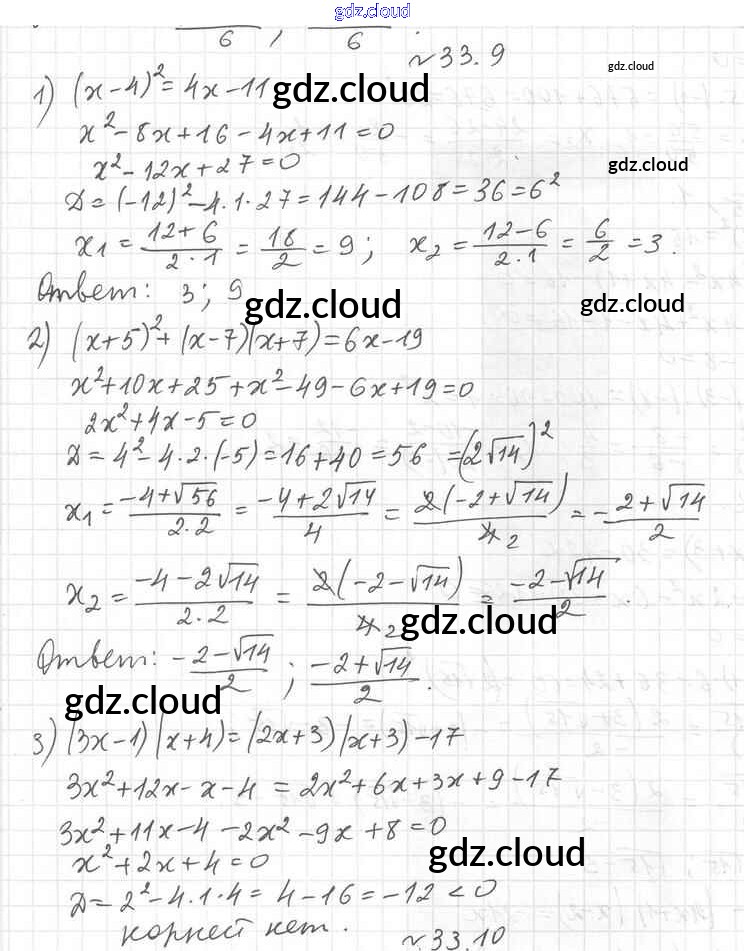 gdz.cloud
6 , 6 .
№33.9
gdz.cloud
1) (x-4)² = 4x-11
gdz.cloud
x²-8x+16-4x+11=0
x²-12x+27=0
gdz.cloud
Д=(-12)²-4·1·27=144-108=36=6²
x₁ = (12+6)/(2·1) = 18/2 = 9; x₂ = (12-6)/(2·1) = 6/2 = 3.
Ответ: 3; 9
gdz.cloud
gdz.cloud
2) (x+5)²+(x-7)(x+7)=6x-19
x²+10x+25+x²-49-6x+19=0
2x²+4x-5=0
Д=4²-4·2·(-5)=16+40=56 =(2√14)²
x₁ = (-4+√56)/(2·2) = (-4+2√14)/4 = 2(-2+√14)/4 2 = -(2+√14)/2
x₂ = (-4-2√14)/(2·2) = 2(-2-√14)/4 2 = (-2-√14)/2 .
gdz.cloud
Ответ: -(2-√14)/2 ; (-2+√14)/2 .
gdz.cloud
3) (3x-1)(x+4)=(2x+3)(x+3)-17
3x²+12x-x-4 = 2x²+6x+3x+9-17
3x²+11x-4-2x²-9x+8=0
x²+2x+4=0
gdz.cloud
Д=2²-4·1·4=4-16=-12<0
корней нет.
№33.10